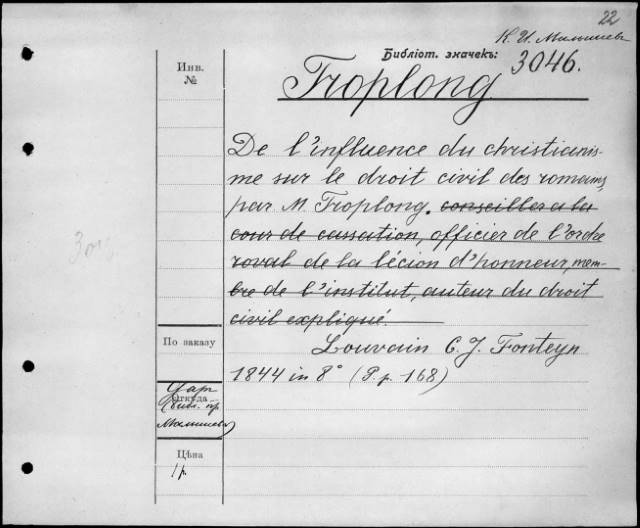 22
К. И. Малышев
Библіот. значекъ:
3046.
Инв.
№
Troplong
De l'influence du christianis-
me sur le droit civil des romains,
par M. Troplong. conseiller a la
cour de cassation, officier de l'ordre
roval de la lécion d'honneur, mem-
bre de l'institut, auteur du droit
civil expliqué.
По заказу
Louvain C. J. Fonteyn
1844 in 8° (P. p. 168)
Даръ
Откуда
Малышева
Цѣна
1 р.